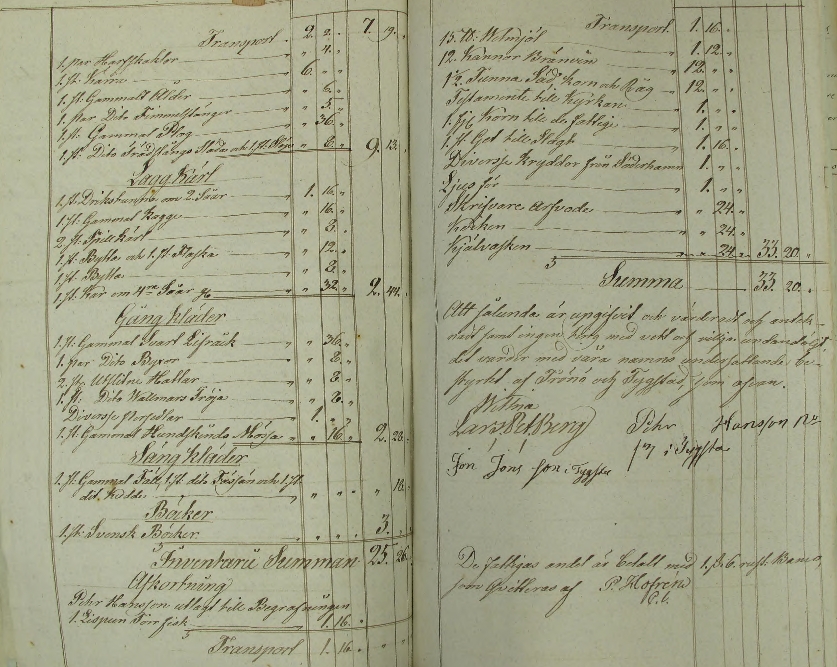 Transport 2. 2. " 7. 19. "
1. par Harfskaklor " 4. "
1. st. Kärra 6. " "
1. st. Gammalt Ålder " 6. "
1. par Dito Fimmelstänger " 3. "
1. st. Gammal Plog " 36. "
1. st. Dito " 6. " 9. 13. "
Lagg Kärl
1. st. om 2. Såar 1. 16. "
1. st. Gammal Bagge " 16. "
2. st. Spill Kärl " 8. "
1. st. Bytta och 1. st. Flaska " 12. "
1. st. Bytta " 8. "
1. st. Kar om 4ra Såar " 32. " 2. 44. "
Gång kläder
1. st. Gammal Svart Lifråck " 36. "
1. par Dito Byxor " 8. "
2. st. Utslitne Hattar " 8. "
1. st. Dito Wallmars Tröja " 8. "
Diverse Persedlar 1. " "
1. st. Gammal Hundskinds Mössa " 16. " 2. 28. "
Säng kläder
1. st. Gammal Fäll, 1. st. dito och 1. st.
dito " " " " 18. "
Böcker
1. st. Svensk Böcker " " " 3. " "
Inventarii Summan 25. 26. "
Afkortning
Pehr Hansson utlagt till Begrafningen
1. Lispun Torr fisk 1. 16. "
Transport 1. 16. " " "
Transport 1. 16. "
15. ℔: Mjöl 1. 12. "
12. Kannor Bränvin 12. " "
1½. Tunna Säd Korn och Råg 12. " "
Testamente till Kyrkan 1. " "
korn till de fattige 1. " "
1. st. Get till Slagt 1. 16. "
Diverse Kryddor från Söderhamn 1. " "
Ljus för 1. " "
Skrifvare Arfvode " 24. "
" 24. "
" 24. " 33. 20. "
Summa 33. 20. "
Att sålunda är upgifvit och värderadt och anteck-
nadt samt ingen ting med vett och vilja undandoldt
det varder med våra namns undersättande be-
styrkt af Trönö och Tygsta, som ofvan.
Wittna
Lars Pet Berg Pehr Hansson
Jon Jons son i Tygsta i Tygsta
De fattigas andel är betalt med 1. ß. 6. rst. Banco,
som Qvitteras af P. Hofren